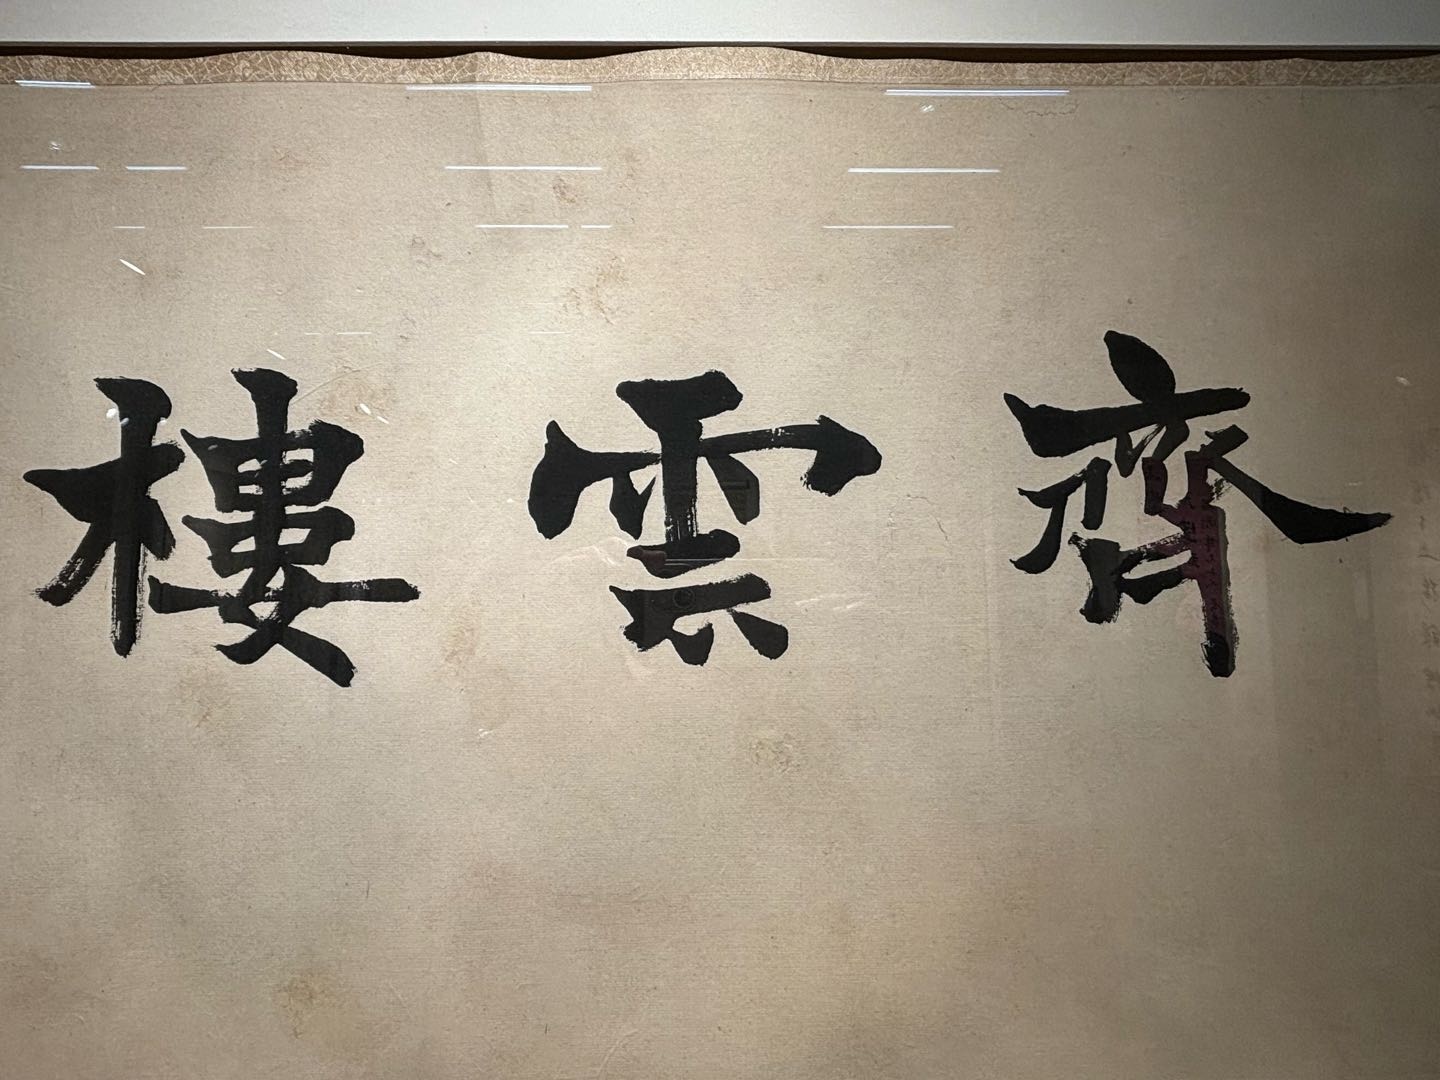 齊雲樓